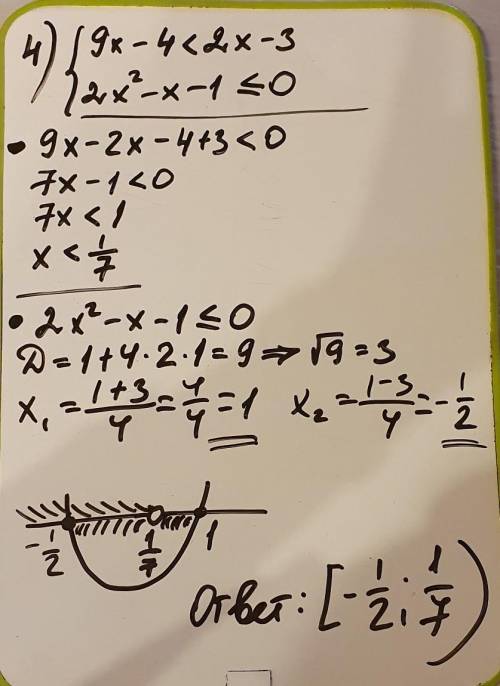 4) { 9x - 4 < 2x - 3
2x² - x - 1 ≤ 0
• 9x - 2x - 4 + 3 < 0
7x - 1 < 0
7x < 1
x < 1/7
• 2x² - x - 1 ≤ 0
Д = 1 + 4 · 2 · 1 = 9 ⇒ √9 = 3
x₁ = (1+3)/4 = 4/4 = 1 x₂ = (1-3)/4 = -1/2
-1/2 1/7 1
Ответ: [-1/2; 1/7)